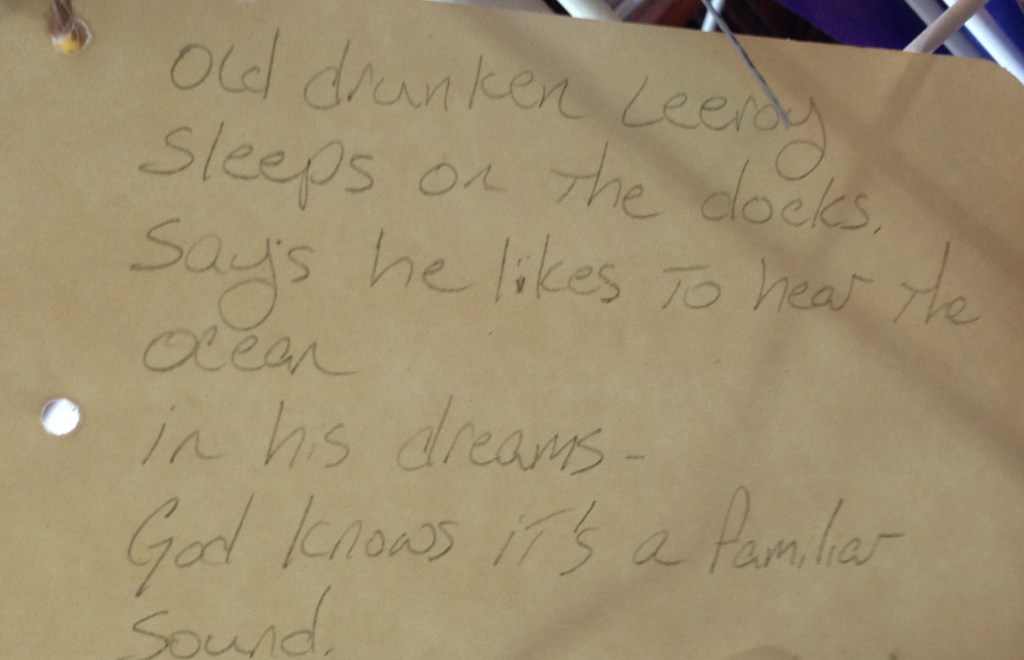 Old drunken Leeroy
Sleeps on the docks.
Says he likes To hear the
Ocean
in his dreams-
God knows iT's a familiar
Sound.